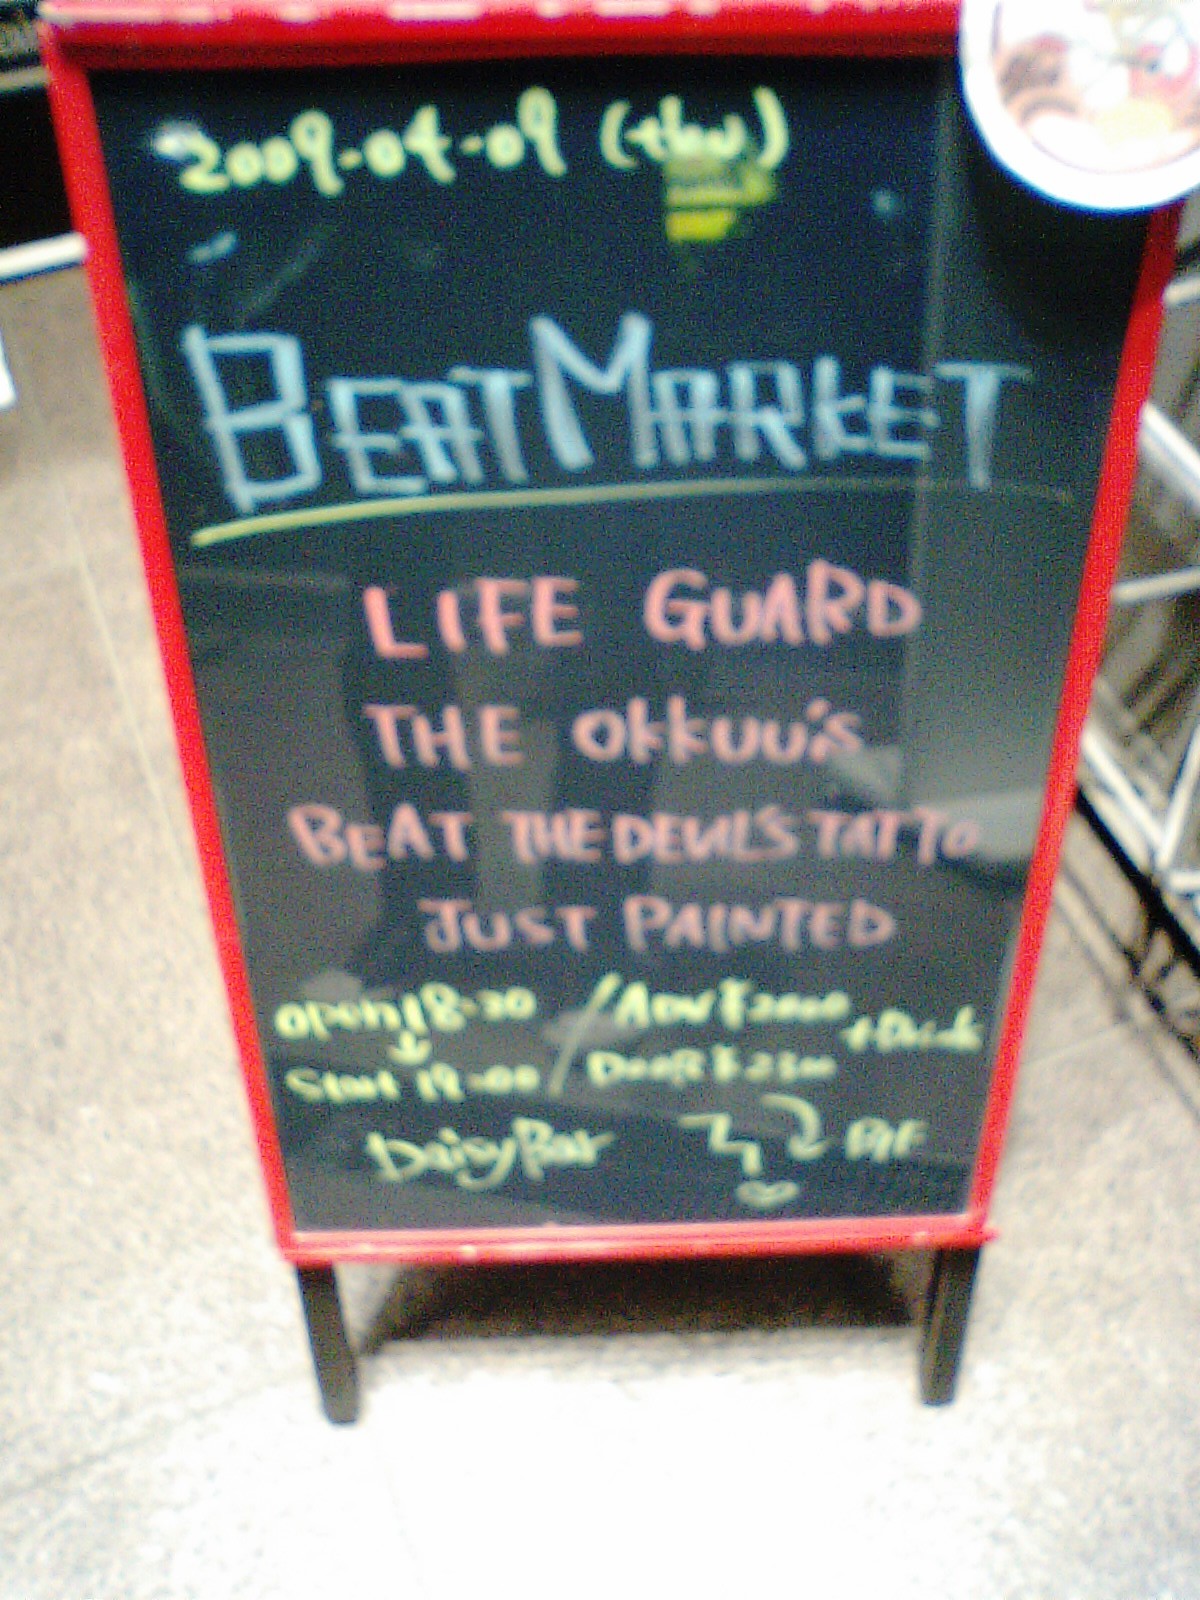 2009-04-09 (thu)
BEAT MARKET
LIFE GUARD
THE Okkuu's
BEAT THE DEVIL'S TATTO
JUST PAINTED
open 18-30 / ADV ¥2000 +Drink
↓
Start 19-00 / DOOR ¥2300
Daisy Bar B1F